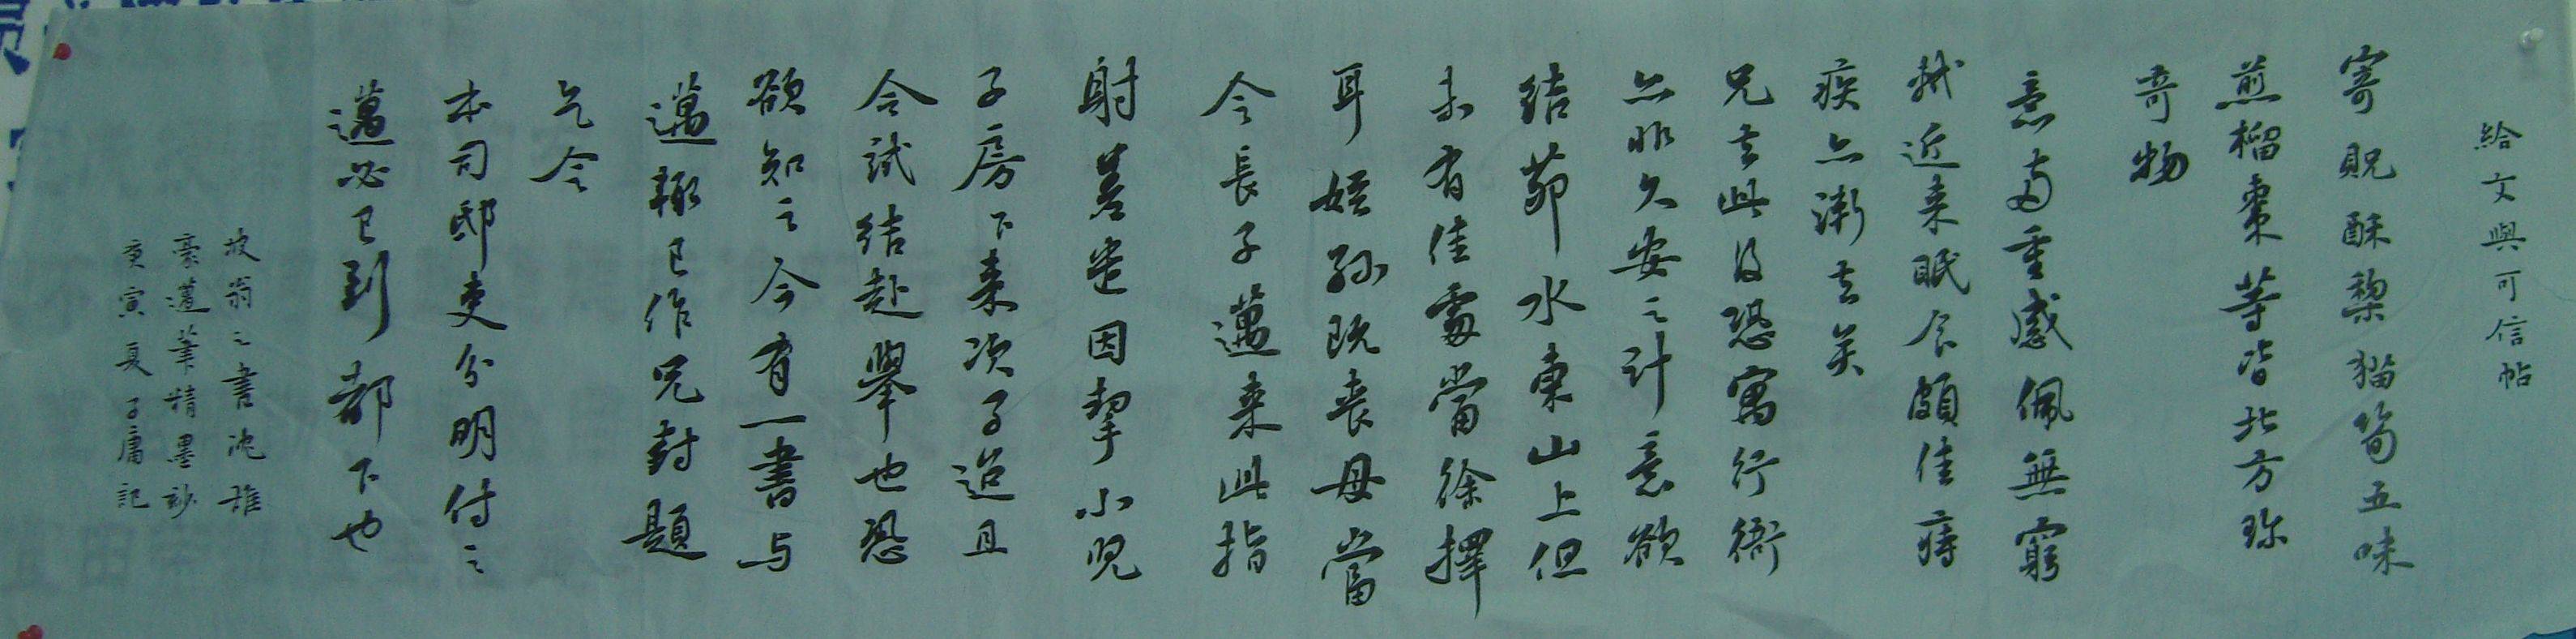 給文與可信帖
寄貺酥梨猫筍五味
煎榴棗等皆北方珎
奇物
意両重感佩無窮
軾近来眠食頗佳痔
疾亦漸去矣
兄去此後恐寓行衙
亦非久安之計意欲
結茆水東山上但
未有佳處當徐擇
耳姪孫既喪母當
令長子邁来此指
射差遣因挈小兒
子房下来次子迨且
令試結赴舉也恐
欲知之今有一書与
邁輙已作兄封題
乞令
本司邸吏分明付之
邁必已到都下也
坡翁之書沈雄
豪邁筆精墨妙
庚寅夏子庸記